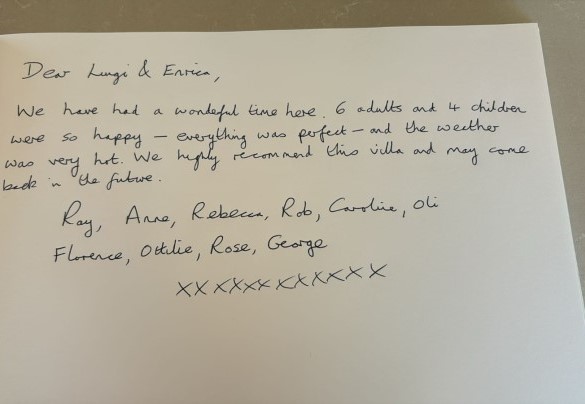 Dear Luigi & Enrica,
We have had a wonderful time here. 6 adults and 4 children
were so happy – everything was perfect – and the weather
was very hot. We highly recommend this villa and may come
back in the future.
Ray, Anne, Rebecca, Rob, Caroline, Oli
Florence, Ottilie, Rose, George
XX XXXXX XXXXXXX